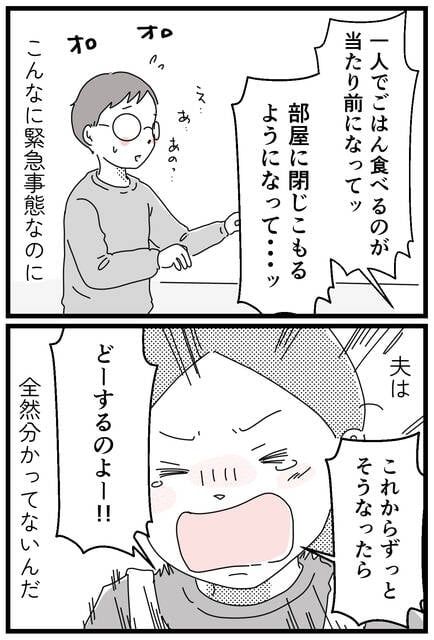 一人でごはん食べるのが
当たり前になってッ
部屋に閉じこもる
ようになって・・・ッ
オロ
オロ
え…
あ…
あの?
こんなに緊急事態なのに
夫は
これからずっと
そうなったら
どーするのよー!!
全然分かってないんだ